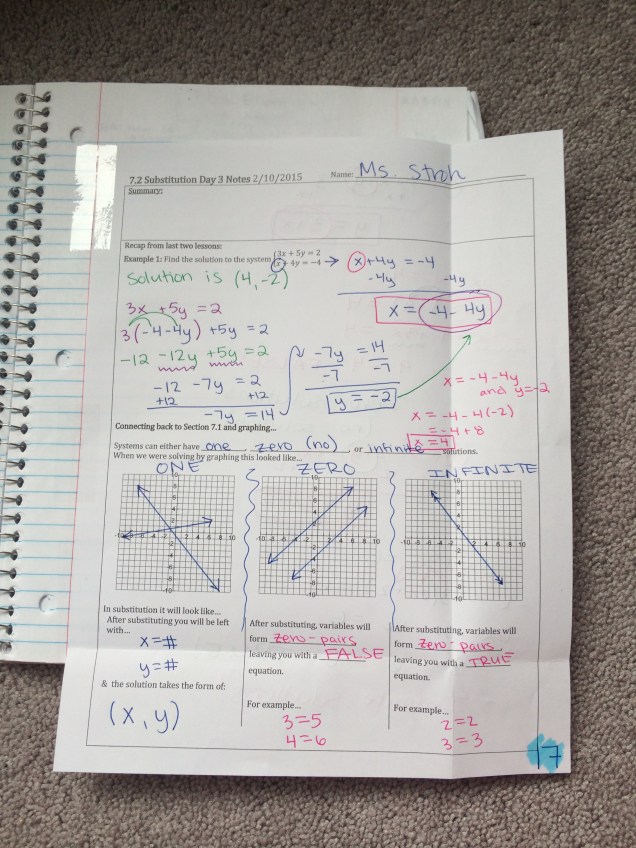 7.2 Substitution Day 3 Notes 2/10/2015 Name: Ms. Stroh
Summary:
Recap from last two lessons:
Example 1: Find the solution to the system 3x + 5y = 2
x + 4y = −4 → x + 4y = -4
Solution is (4, -2)
-4y -4y
x = -4 - 4y
3x + 5y = 2
3(-4-4y) + 5y = 2
-12 -12y + 5y = 2
-12 -7y = 2
+12 +12
-7y = 14
-7y = 14
-7 -7
y = -2
x = -4 - 4y
and y = -2
x = -4 - 4(-2)
= -4 + 8
x = 4
Connecting back to Section 7.1 and graphing...
Systems can either have one, zero (no), or infinite solutions.
When we were solving by graphing this looked like...
ONE ZERO INFINITE
In substitution it will look like...
After substituting you will be left
with...
x = #
y = #
& the solution takes the form of:
(x, y)
After substituting, variables will
form zero-pairs
leaving you with a FALSE
equation.
For example...
3=5
4=6
After substituting, variables will
form zero-pairs
leaving you with a TRUE
equation.
For example...
2=2
3=3
17